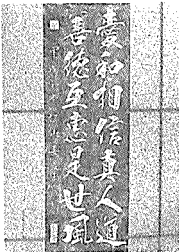 愛和相信真人道
善德互惠是世風